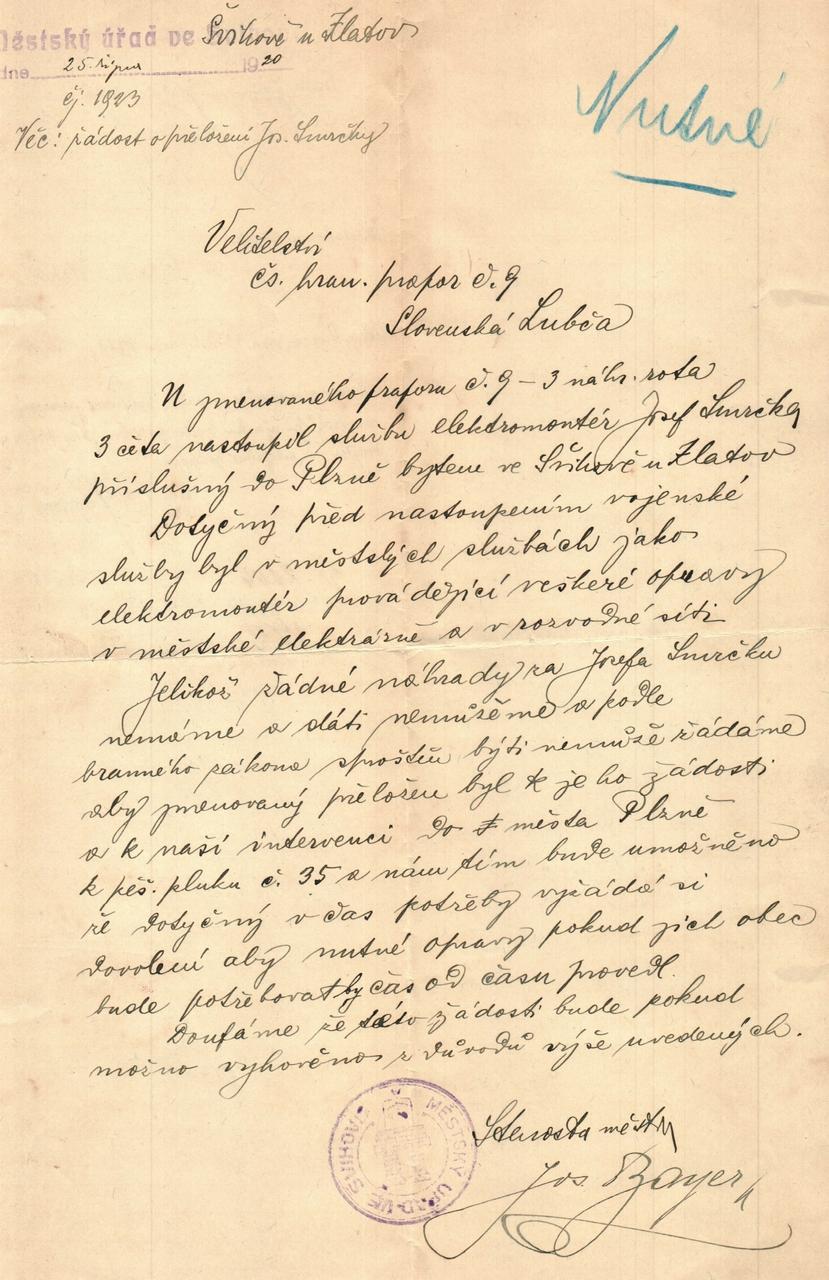 Městský úřad ve Švihově u Klatov
dne 25. srpna 1920
čj. 1923
Věc: žádost o přeložení Jos. Smrčky
Nutné
Velitelství
čs. hran. prapor č. 9
Slovenská Lubča
U jmenovaného praporu č. 9 – 3 náhr. rota
3 četa nastoupil službu elektromontér Josef Smrčka
příslušný do Plzně bytem ve Švihově u Klatov
Dotyčný před nastoupením vojenské
služby byl v městských službách jako
elektromontér provádějící veškeré opravy
v městské elektrárně a v rozvodné síti
Jelikož žádné náhrady za Josefa Smrčku
nemáme a dáti nemůžeme a podle
branného zákona sproštěn býti nemůže žádáme
aby jmenovaný přeložen byl k jeho žádosti
a k naší intervenci do města Plzně
k pěš. pluku č. 35 a nám tím bude umožněno
že dotyčný v čas potřeby vyžádá si
dovolení aby nutné opravy pokud jich obec
bude potřebovat by čas od času provedl.
Doufáme že této žádosti bude pokud
možno vyhověno z důvodů výše uvedených.
MĚSTSKÝ ÚŘAD VE ŠVIHOVĚ
Starosta města
Jos. Bayer